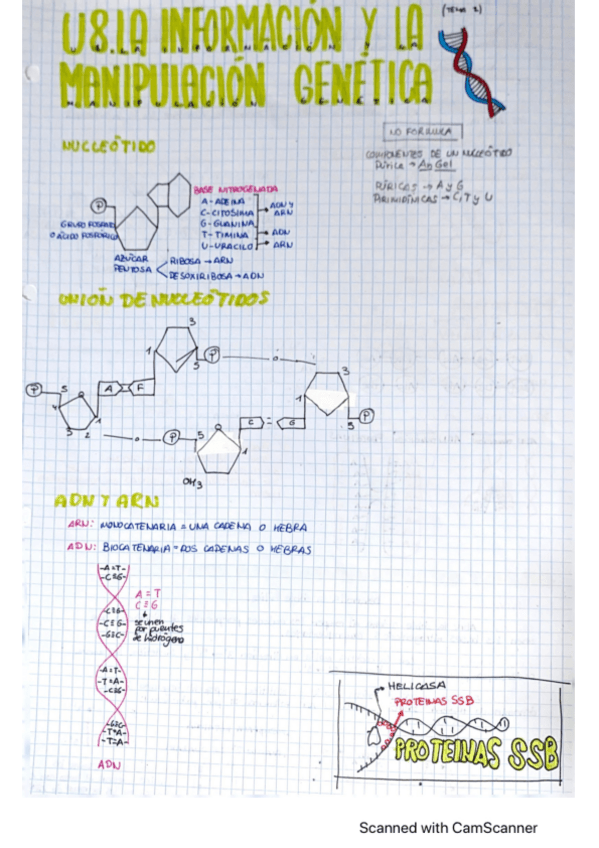 U8.LA INFORMACIÓN Y LA
MANIPULACIÓN GENÉTICA
(TEMA 2)
NO FORMULA
NUCLEÓTIDO
COMPONENTES DE UN NUCLEÓTIDO
Púrica → An Gel
PÚRICAS → A y G
PIRIMIDÍNICAS → C, T y U
P
BASE NITROGENADA
A - ADEINA
C - CITOSIMA
G - GUANINA
T - TIMINA
U - URACILO
ADN Y
ARN
ADN
ARN
GRUPO FOSFATO
O ÁCIDO FOSFÓRICO
AZÚCAR
PENTOSA
RIBOSA → ARN
DESOXIRIBOSA → ADN
UNIÓN DE NUCLEÓTIDOS
3
1
P
5
3
P
5
A
F
1
4
1
3
2
P
5
C
=
G
P
5
1
OH3
ADN Y ARN
ARN: MONOCATENARIA = UNA CADENA O HEBRA
ADN: BIOCATENARIA = DOS CADENAS O HEBRAS
-A=T-
-C≡G-
A = T
C ≡ G
se unen
por puentes
de hidrógeno
-C≡G-
-C≡G-
-G≡C-
-A=T-
-T=A-
-C≡G-
-G≡C-
-T=A-
-T=A-
ADN
HELICASA
PROTEINAS SSB
PROTEINAS SSB
Scanned with CamScanner